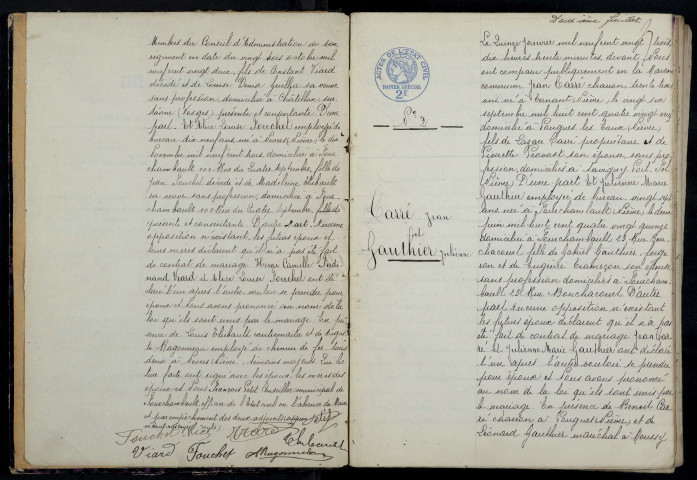 Membres du Conseil d'Administration de son
régiment en date du vingt six octobre mil
neuf cent vingt deux, fils de Constant Viard
décédé et de Louise sa veuve
sans profession domiciliée à Châtillon sur
Saône (Vosges) présente et consentante D'une
part. Et Alice Louise Touchet employée de
bureau dix neuf ans née à Nevers (Nièvre) le dix
Novembre mil neuf cent trois domiciliée à Four
chambault 101 Rue du Quatre Septembre, fille de
Jean Touchet décédé et de Madeleine Thibault
sa veuve sans profession, domiciliée à Four
chambault 101 Rue du Quatre Septembre
présente et consentante D'autre part. Aucune
opposition n'existant, les futurs époux et
leurs mères déclarent qu'il n'a pas été fait
de contrat de mariage. Henri Camille Ferdi
nand Viard et Alice Louise Touchet ont dé
claré l'un après l'autre vouloir se prendre pour
époux et nous avons prononcé au nom de la
loi qu'ils sont unis par le mariage. En pré
sence de Louis Thibault et de
Magonneau employé de chemin de fer, tous
deux à Nevers (Nièvre) témoins majeurs. Qui lec
ture faite ont signé avec les époux les mères des
époux et Nous François Petit Conseiller municipal de
Fourchambault officier de l'état civil en l'absence du Maire
et par empêchement des deux adjoints
Touchet Alice Viard Thibault
Viard Touchet Magonneau
ACTES DE L'ÉTAT CIVIL
PAPIER SPÉCIAL
2F
No 3
Carré Jean
et
Gauthier Julienne
Deuxième feuillet
Le Quinze Janvier mil neuf cent vingt trois
dix heures trente minutes devant Nous
ont comparu publiquement en la Maison
commune Jean Carré charron, trente
ans né à (Nièvre) le vingt six
septembre mil huit cent quatre vingt
domicilié à Pougues les Eaux (Nièvre)
fils de Lazare Carré propriétaire et de
Pierrette son épouse, sans pro
fession, domiciliés à Savigny Poil Fol
(Nièvre) D'une part. Et Julienne Marie
Gauthier employée de bureau vingt sept
ans née à Fourchambault (Nièvre) le deux
juin mil huit cent quatre vingt quinze
domiciliée à Fourchambault 23 Rue Bon
chacourt, fille de Gabriel Gauthier, forge
ron et de Eugénie son épouse
sans profession domiciliés à Fourcham
bault 23 Rue Bonchacourt D'autre
part. Aucune opposition n'existant
les futurs époux déclarent qu'il n'a pas
été fait de contrat de mariage. Jean Car
ré et Julienne Marie Gauthier ont déclaré
l'un après l'autre vouloir se prendre
pour époux et nous avons prononcé
au nom de la loi qu'ils sont unis par
le mariage. En présence de Benoit Car
ré charron à Pougues (Nièvre) et de
Léonard Gauthier maréchal à Moussy